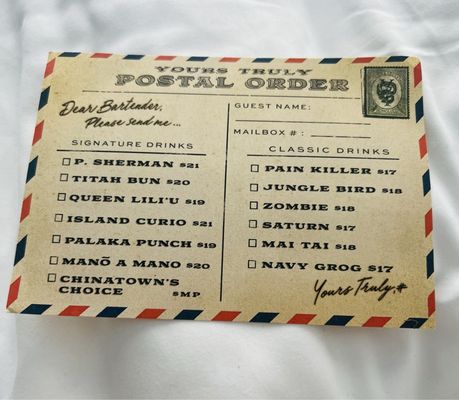 YOURS TRULY
POSTAL ORDER
Dear Bartender,
Please send me...
SIGNATURE DRINKS
P. SHERMAN $21
TITAH BUN $20
QUEEN LILI'U $19
ISLAND CURIO $21
PALAKA PUNCH $19
MANŌ A MANO $20
CHINATOWN'S
CHOICE $MP
GUEST NAME:
MAILBOX #:
CLASSIC DRINKS
PAIN KILLER $17
JUNGLE BIRD $18
ZOMBIE $18
SATURN $17
MAI TAI $18
NAVY GROG $17
Yours Truly,